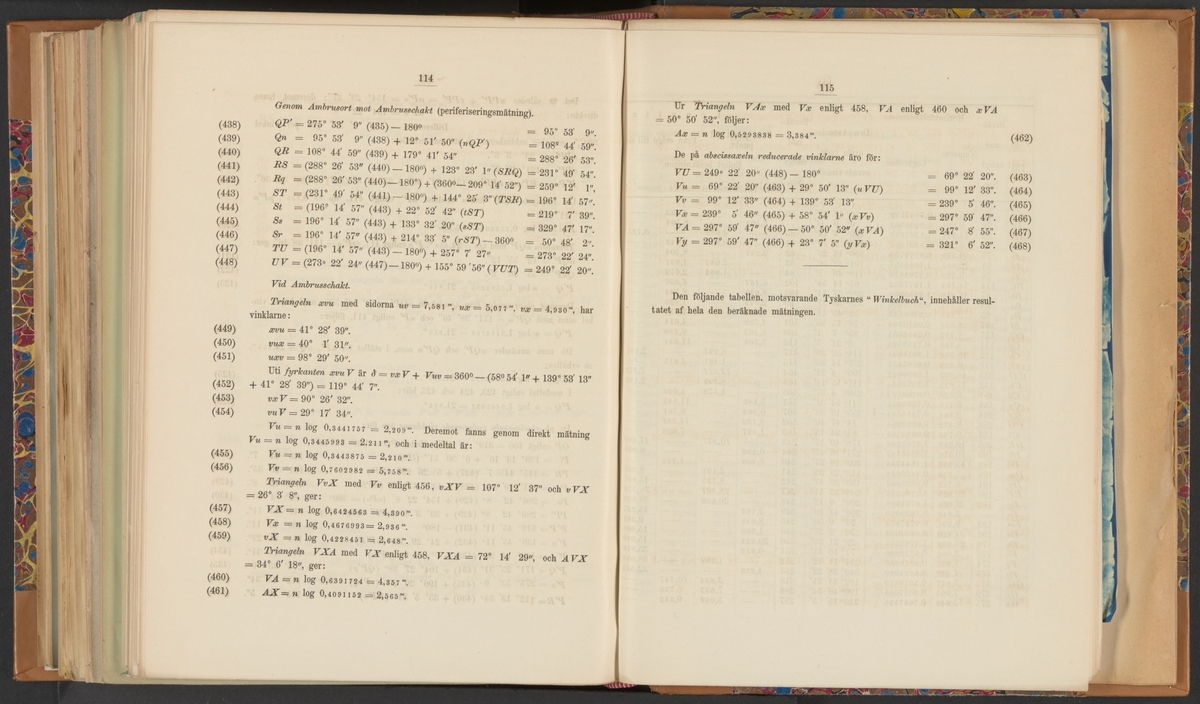 114
Genom Ambrusort mot Ambrusschakt (periferiseringsmätning).
(438) QP′ = 275° 53′ 9″ (435) — 180° = 95° 53′ 9″.
(439) Qn = 95° 53′ 9″ (438) + 12° 51′ 50″ (nQP′) = 108° 44′ 59″.
(440) QR = 108° 44′ 59″ (439) + 179° 41′ 54″ = 288° 26′ 53″.
(441) RS = (288° 26′ 53″ (440) — 180°) + 123° 23′ 1″ (SRQ) = 231° 49′ 54″.
(442) Rq = (288° 26′ 53″ (440) — 180°) + (360° — 209° 14′ 52″) = 259° 12′ 1″,
(443) ST = (231° 49′ 54″ (441) — 180°) + 144° 25′ 3″ (TSR) = 196° 14′ 57″.
(444) St = (196° 14′ 57″ (443) + 22° 52′ 42″ (tST) = 219° 7′ 39″.
(445) Ss = 196° 14′ 57″ (443) + 133° 32′ 20″ (sST) = 329° 47′ 17″.
(446) Sr = 196° 14′ 57″ (443) + 214° 33′ 5″ (rST) — 360° = 50° 48′ 2″.
(447) TU = (196° 14′ 57″ (443) — 180°) + 257° 7′ 27″ = 273° 22′ 24″.
(448) UV = (273° 22′ 24″ (447) — 180°) + 155° 59′ 56″ (VUT) = 249° 22′ 20″.
Vid Ambrusschakt.
Triangeln xvu med sidorna uv = 7,581 m, ux = 5,077 m, vx = 4,930 m, har
vinklarne:
(449) xvu = 41° 28′ 39″.
(450) vux = 40° 1′ 31″.
(451) uxv = 98° 29′ 50″.
Uti fyrkanten xvu V är δ = vx V + Vuv = 360° — (58° 54′ 1″ + 139° 53′ 13″
(452) + 41° 28′ 39″) = 119° 44′ 7″.
(453) vx V = 90° 26′ 32″.
(454) vu V = 29° 17′ 34″.
Vu = n log 0,3441757 = 2,209 m. Deremot fanns genom direkt mätning
Vu = n log 0,3445993 = 2,211 m, och i medeltal är:
(455) Vu = n log 0,3443875 = 2,210 m.
(456) Vv = n log 0,7602982 = 5,758 m.
Triangeln VvX med Vv enligt 456, vXV = 107° 12′ 37″ och v VX
= 26° 3′ 8″, ger:
(457) VX = n log 0,6424563 = 4,390 m.
(458) Vx = n log 0,4676993 = 2,936 m.
(459) vX = n log 0,4228451 = 2,648 m.
Triangeln VXA med VX enligt 458, VXA = 72° 14′ 29″, och A VX
= 34° 6′ 18″, ger:
(460) VA = n log 0,6391724 = 4,357 m.
(461) AX = n log 0,4091152 = 2,565 m.
115
Ur Triangeln VAx med Vx enligt 458, VA enligt 460 och x VA
= 50° 50′ 52″, följer:
Ax = n log 0,5293838 = 3,384 m. (462)
De på abscissaxeln reducerade vinklarne äro för:
VU = 249° 22′ 20″ (448) — 180° = 69° 22′ 20″. (463)
Vu = 69° 22′ 20″ (463) + 29° 50′ 13″ (u VU) = 99° 12′ 33″. (464)
Vv = 99° 12′ 33″ (464) + 139° 53′ 13″ = 239° 5′ 46″. (465)
Vx = 239° 5′ 46″ (465) + 58° 54′ 1″ (x Vv) = 297° 59′ 47″. (466)
VA = 297° 59′ 47″ (466) — 50° 50′ 52″ (x VA) = 247° 8′ 55″. (467)
Vy = 297° 59′ 47″ (466) + 23° 7′ 5″ (y Vx) = 321° 6′ 52″. (468)
Den följande tabellen, motsvarande Tyskarnes "Winkelbuch", innehåller resul-
tatet af hela den beräknade mätningen.